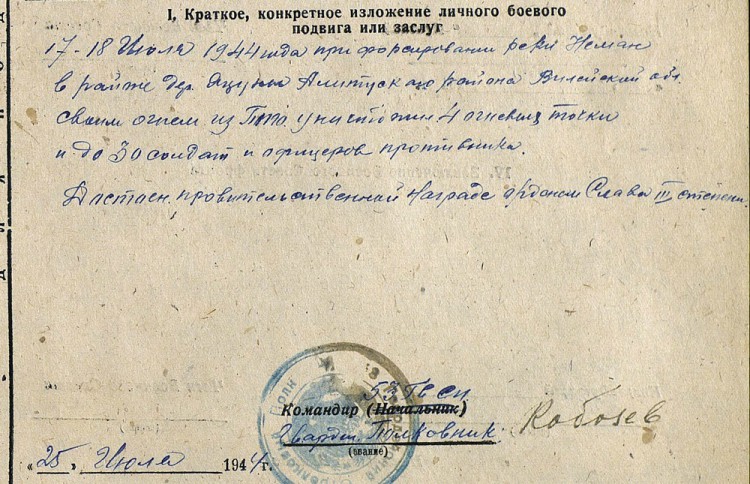 I. Краткое, конкретное изложение личного боевого
подвига или заслуг
17-18 Июля 1944 года при форсировании реки Неман
в районе дер. Алитуского района Вилейской обл.
своим огнем из Птр уничтожил 4 огневых точки
и до 30 солдат и офицеров противника.
Достоин правительственной Награде орденом Слава III степени.
53 Гв СП
Командир (Начальник)
Гвардии Полковник Кобозев
(звание)
"25" Июля 1944 г.